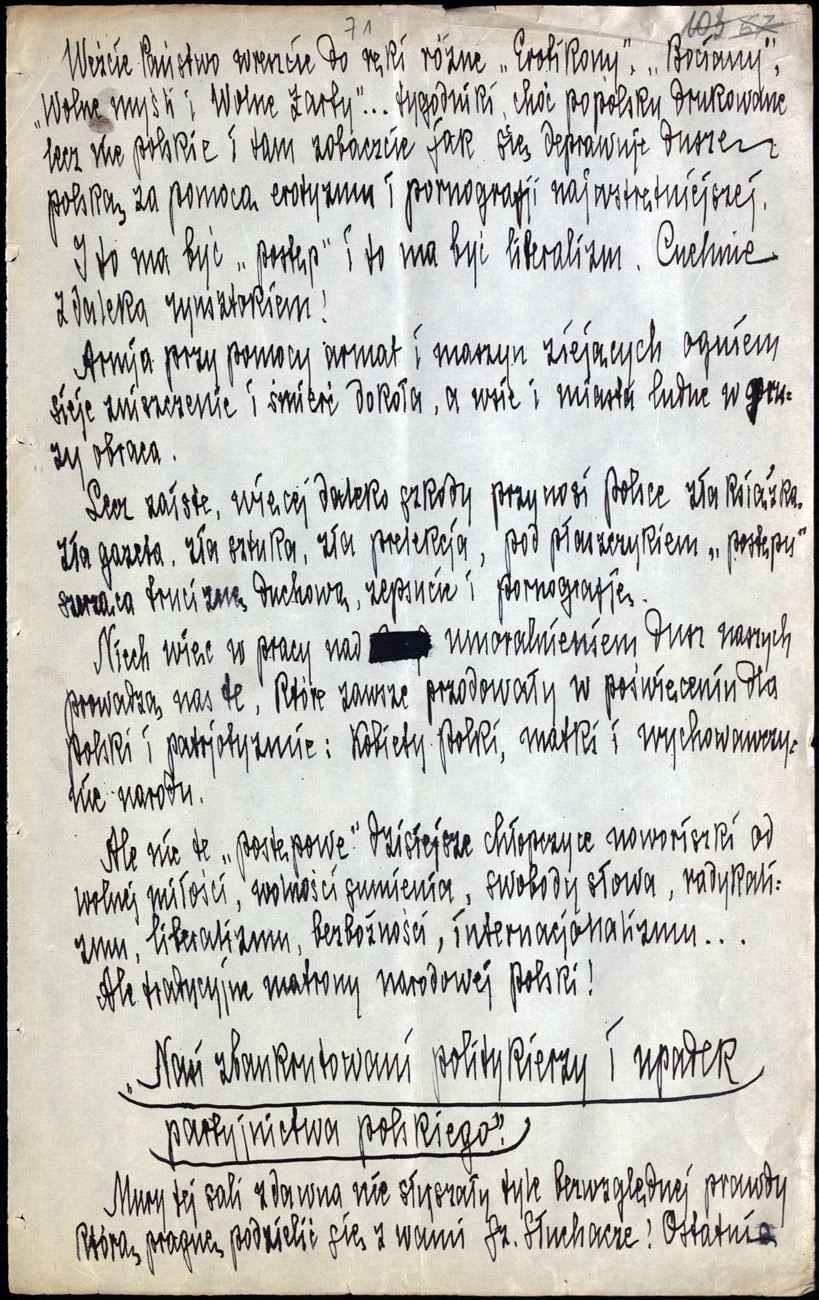 71 103 67
Weźcie Państwo wreszcie do ręki różne „Erotikony", „Bociany",
„Wolne myśli i Wolne żarty"... tygodniki, choć popolsku drukowane
lecz nie polskie i tam zobaczcie jak się deprawuje duszę
polską za pomocą erotyzmu i pornografji najwstrętniejszej.
I to ma być „postęp" i to ma być liberalizm. Cuchnie
zdaleka rynsztokiem!
Armja przy pomocy armat i maszyn ziejących ogniem
sieje zniszczenie i śmierć dokoła, a wsie i miasta ludne w gru-
zy obraca.
Lecz zaiste, więcej daleko szkody przynosi Polsce zła książka,
zła gazeta, zła sztuka, zła prelekcja, pod płaszczykiem „postępu"
szerząca truciznę duchową, zepsucie i pornografję.
Niech więc w pracy nad umoralnieniem dusz naszych
prowadzą nas te, które zawsze przodowały w poświęceniu dla
Polski i patrjotyzmie: Kobiety Polki, matki i wychowawczy-
nie narodu.
Ale nie te „postępowe" dzisiejsze chłopczyce noworiszki od
wolnej miłości, wolności sumienia, swobody słowa, radykali-
zmu, liberalizmu, bezbożności, internacjonalizmu...
Ale tradycyjne matrony narodowej Polski!
„Nasi zbankrutowani politykierzy i upadek
partyjnictwa polskiego".
Mury tej sali zdawna nie słyszały tyle bezwzględnej prawdy
którą pragnę podzielić się z wami Sz. Słuchacze! Ostatnia